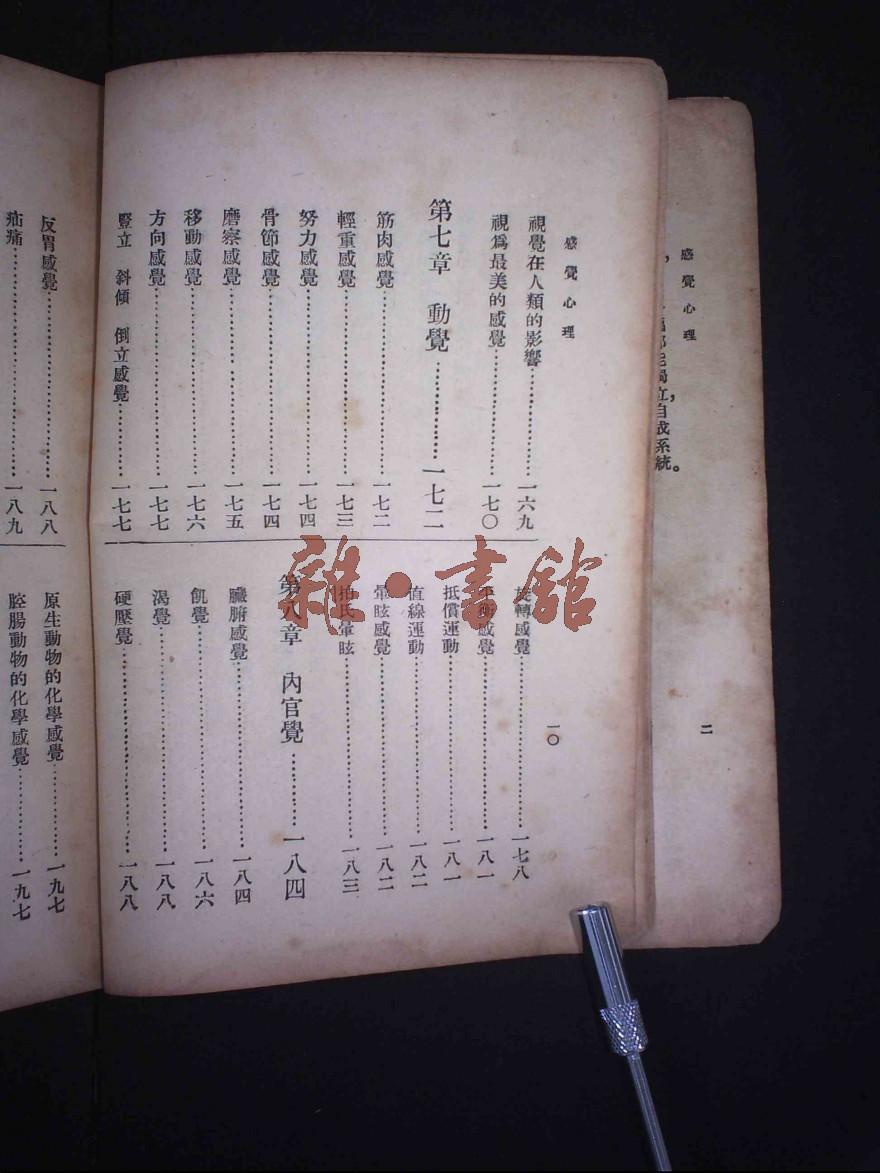 感覺心理
二
獨立,自成系統。
感覺心理
一〇
視覺在人類的影響……一六九
視為最美的感覺……一七〇
第七章 動覺……一七二
筋肉感覺……一七二
輕重感覺……一七三
努力感覺……一七四
骨節感覺……一七四
磨察感覺……一七五
移動感覺……一七六
方向感覺……一七七
豎立 斜傾 倒立感覺……一七七
旋轉感覺……一七八
平衡感覺……一八一
抵償運動……一八一
直線運動……一八二
暈眩感覺……一八二
拍氏暈眩……一八三
第八章 內官覺……一八四
臟腑感覺……一八四
飢覺……一八六
渴覺……一八八
硬壓覺……一八八
反胃感覺……一八八
疝痛……一八九
原生動物的化學感覺……一九七
腔腸動物的化學感覺……一九七
雜·書館